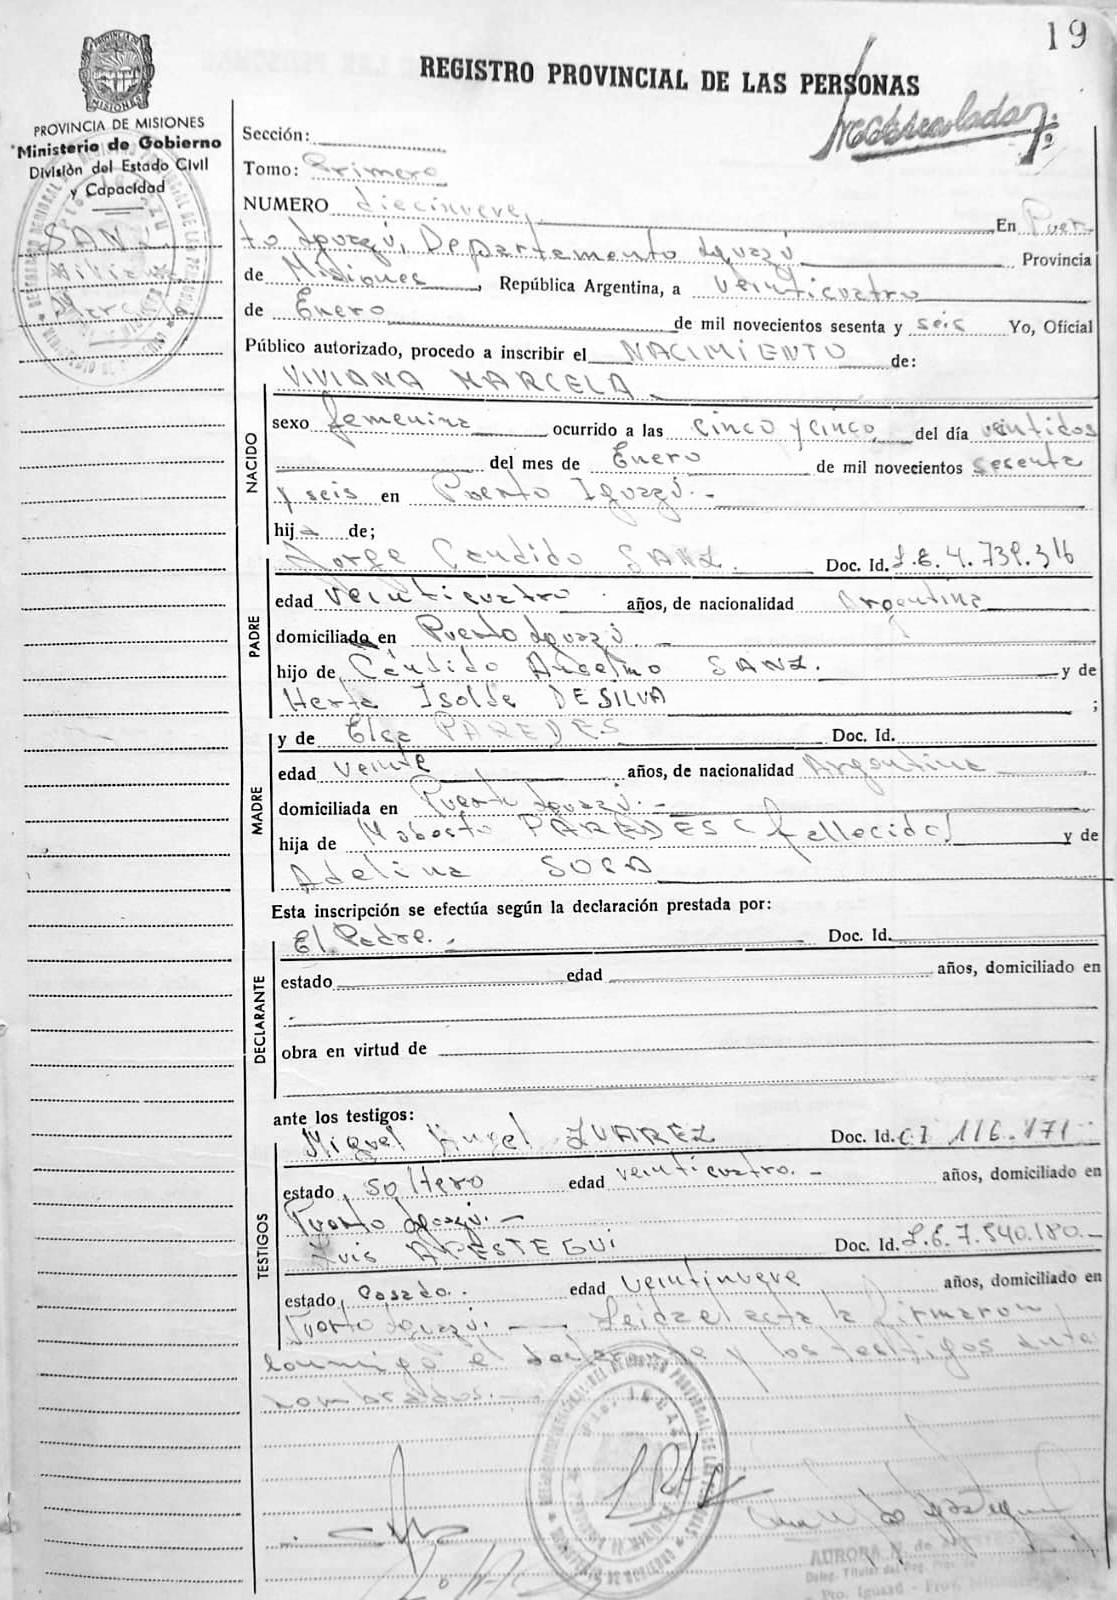 19
REGISTRO PROVINCIAL DE LAS PERSONAS
PROVINCIA DE MISIONES
Ministerio de Gobierno
División del Estado Civil
y Capacidad
SANZ
Viviana
Marcela
Sección:
Tomo: Primero
NUMERO diecinueve, En Puer
to Iguazú, Departamento Iguazú Provincia
de Misiones, República Argentina, a veinticuatro
de Enero de mil novecientos sesenta y seis Yo, Oficial
Público autorizado, procedo a inscribir el NACIMIENTO de:
NACIDO
VIVIANA MARCELA
sexo femenina ocurrido a las cinco y cinco del día veintidos
del mes de Enero de mil novecientos sesenta
y seis en Puerto Iguazú.-
hija de;
PADRE
Jorge Candido SANZ. Doc. Id. L.E. 4.739.316
edad veinticuatro años, de nacionalidad Argentina
domiciliado en Puerto Iguazú
hijo de Cándido Anselmo SANZ. y de
Herta Isolde DE SILVA ;
MADRE
y de Elsa PAREDES Doc. Id.
edad veinte años, de nacionalidad Argentina
domiciliada en Puerto Iguazú.-
hija de Mobesto PAREDES (fallecido) y de
Adelina SOSA
Esta inscripción se efectúa según la declaración prestada por:
DECLARANTE
El Padre.- Doc. Id.
estado edad años, domiciliado en
obra en virtud de
ante los testigos:
TESTIGOS
Miguel Angel ZUAREZ Doc. Id. C.I 116.171
estado, soltero edad veinticuatro.- años, domiciliado en
Puerto Iguazú.-
Luis APESTEGUI Doc. Id. L.E. 7.540.180.-
estado, Casado. edad veintinueve años, domiciliado en
Puerto Iguazú.- Leida el acta la firmaron
conmigo el declarante y los testigos ante
nombrados.-
AURORA N. de
Deleg. Titular del Reg. Prov.
Pto. Iguazú - Prov. Misiones